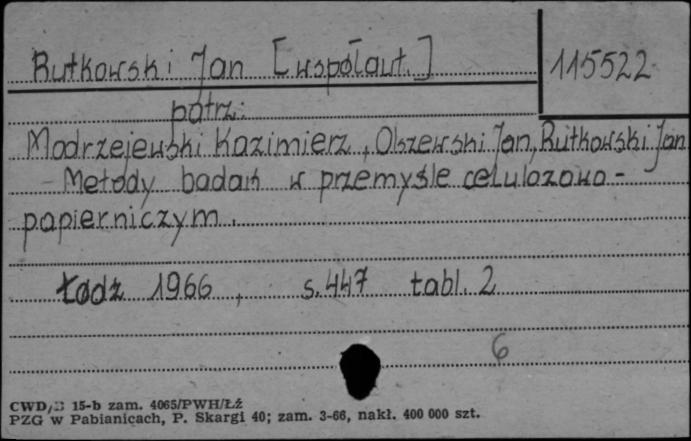 Rutkowski Jan [współaut.]
115522
patrz:
Modrzejewski Kazimierz, Olszewski Jan, Rutkowski Jan
- Metody badań w przemyśle celulozowo-
papierniczym.
Łódź 1966, s. 447 tabl. 2
6
CWD/B 15-b zam. 4065/PWH/Łź
PZG w Pabianicach, P. Skargi 40; zam. 3-66, nakł. 400 000 szt.